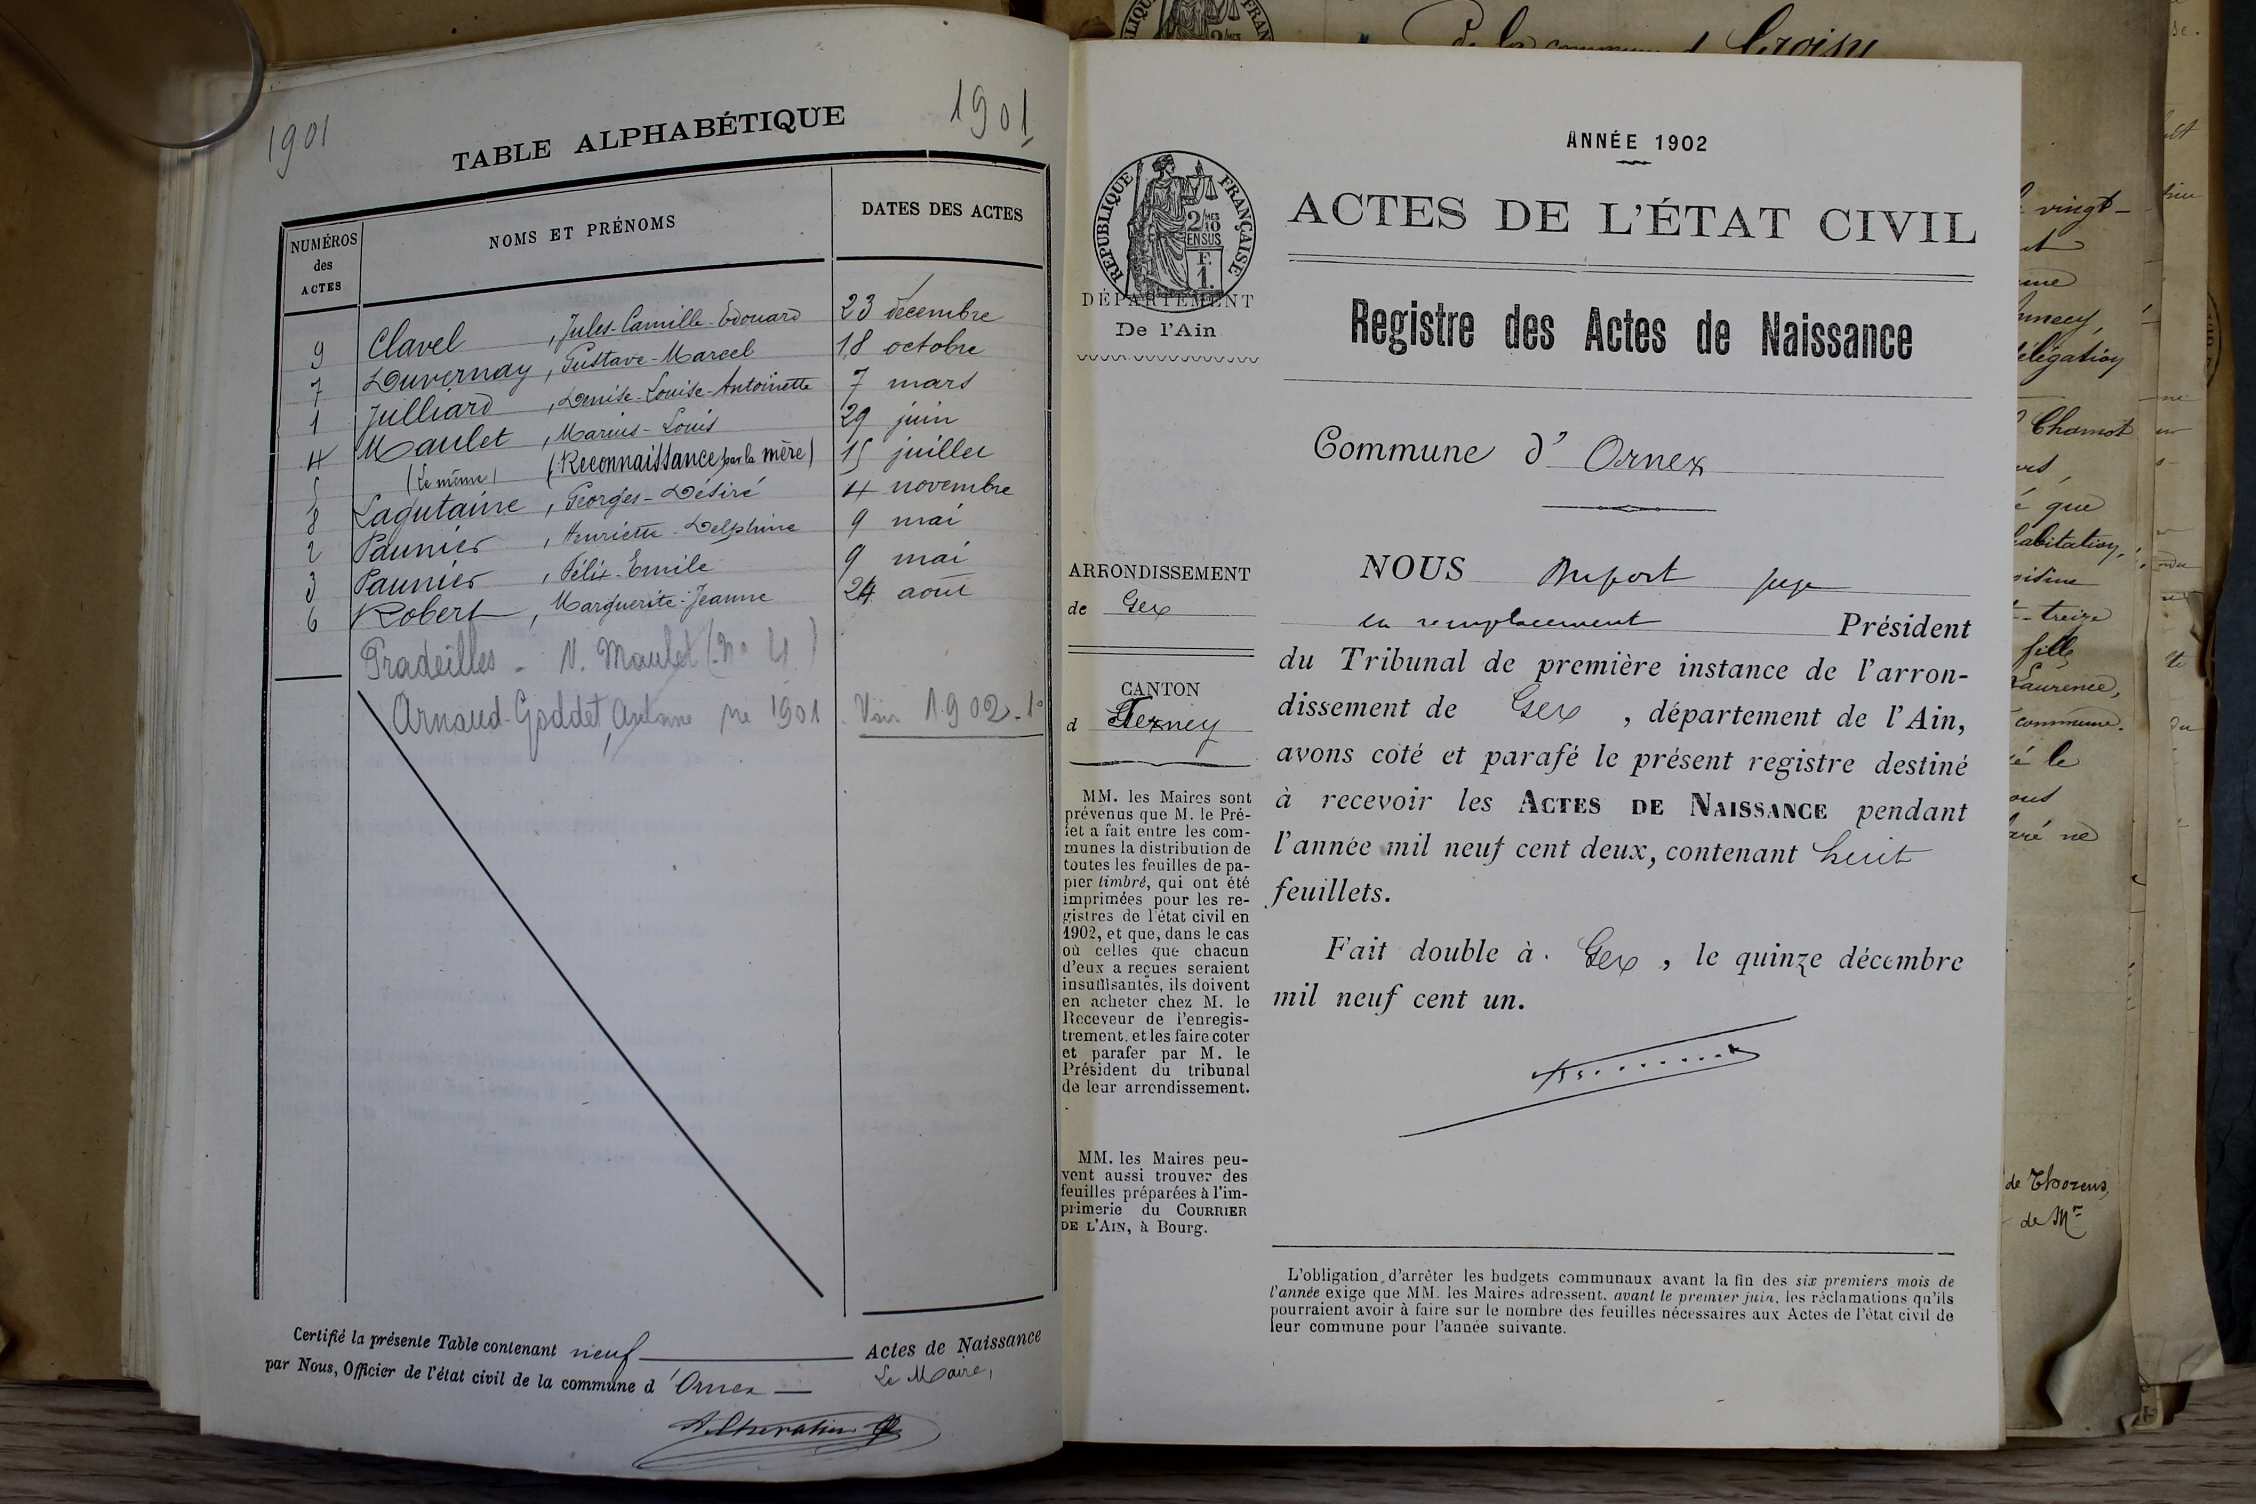 1901
TABLE ALPHABÉTIQUE
1901
NUMÉROS des ACTES
NOMS ET PRÉNOMS
DATES DES ACTES
9 Clavel, Jules-Camille-Edouard 23 décembre
7 Duvernay, Gustave-Marcel 18 octobre
1 Julliard, Denise-Louise-Antoinette 7 mars
4 Maulet, Marius-Louis 29 juin
5 (Le même) (Reconnaissance par la mère) 15 juillet
8 Lagutaine, Georges-Désiré 4 novembre
2 Paunier, Henriette-Delphine 9 mai
3 Paunier, Félix-Emile 9 mai
6 Robert, Marguerite-Jeanne 24 août
Pradeilles - V. Maulet (No 4)
Arnaud-Goddet, Antoine né 1901. Voir 1902-1°
Certifié la présente Table contenant neuf Actes de Naissance
par Nous, Officier de l'état civil de la commune d'Ornex Le Maire,
ANNÉE 1902
ACTES DE L'ÉTAT CIVIL
RÉPUBLIQUE FRANÇAISE
2/10 MES EN SUS
F. 1.
DÉPARTEMENT
De l'Ain
Registre des Actes de Naissance
Commune d' Ornex
ARRONDISSEMENT
de Gex
CANTON
d Ferney
MM. les Maires sont
prévenus que M. le Pré-
fet a fait entre les com-
munes la distribution de
toutes les feuilles de pa-
pier timbré, qui ont été
imprimées pour les re-
gistres de l'état civil en
1902, et que, dans le cas
où celles que chacun
d'eux a reçues seraient
insuffisantes, ils doivent
en acheter chez M. le
Receveur de l'enregis-
trement, et les faire coter
et parafer par M. le
Président du tribunal
de leur arrondissement.
MM. les Maires peu-
vent aussi trouver des
feuilles préparées à l'im-
primerie du COURRIER
DE L'AIN, à Bourg.
NOUS juge
en remplacement Président
du Tribunal de première instance de l'arron-
dissement de Gex, département de l'Ain,
avons coté et parafé le présent registre destiné
à recevoir les ACTES DE NAISSANCE pendant
l'année mil neuf cent deux, contenant huit
feuillets.
Fait double à Gex, le quinze décembre
mil neuf cent un.
L'obligation d'arrêter les budgets communaux avant la fin des six premiers mois de
l'année exige que MM. les Maires adressent, avant le premier juin, les réclamations qu'ils
pourraient avoir à faire sur le nombre des feuilles nécessaires aux Actes de l'état civil de
leur commune pour l'année suivante.
vingt-
délégation
Chamot
que
habitation,
treize
fille
Laurence,
commune.
le
né
de Thorens,
de Mr